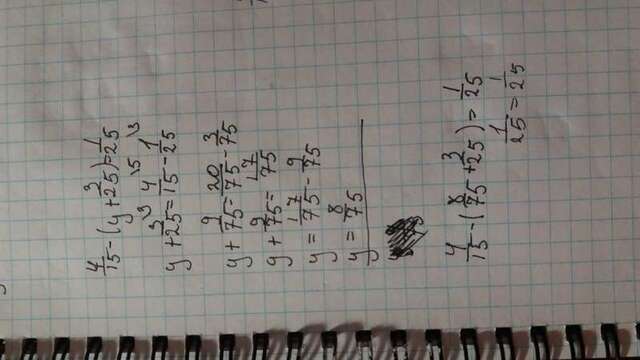 4/15 - (y + 3/25) = 1/25
y + 3/25\3 = 4/15\5 - 1/25\3
y + 9/75 = 20/75 - 3/75
y + 9/75 = 17/75
y = 17/75 - 9/75
y = 8/75
4/15 - (8/75 + 3/25) = 1/25
1/25 = 1/25